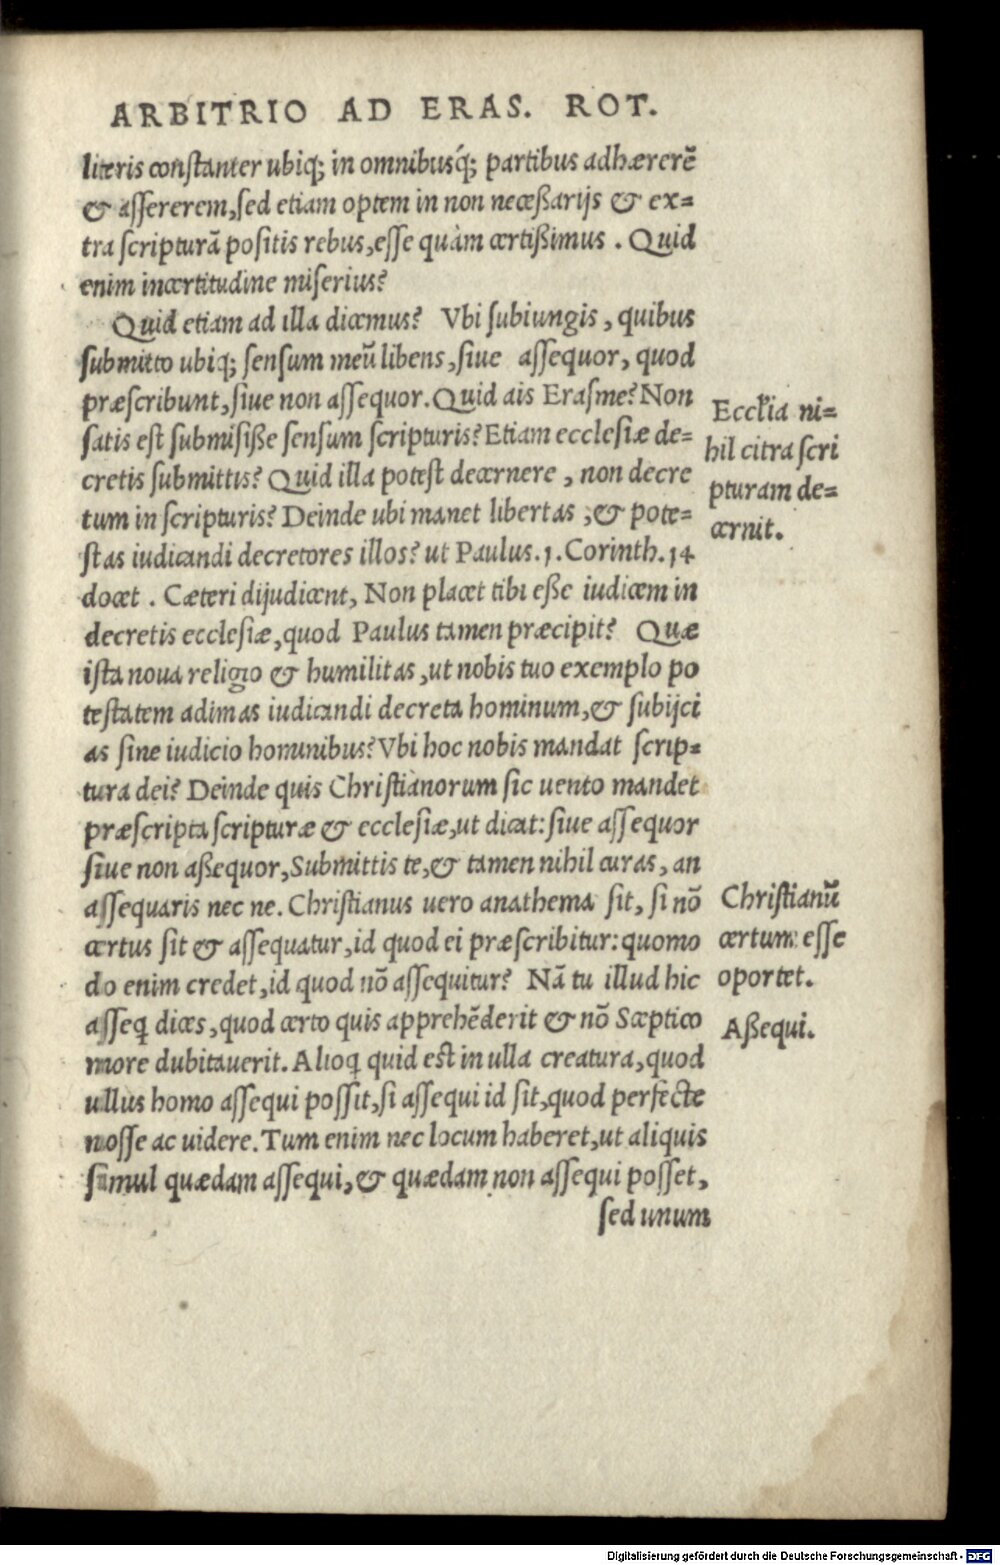 ARBITRIO AD ERAS. ROT.
literis constanter ubiq; in omnibusq́; partibus adhærerē
& assererem, sed etiam optem in non neceßarijs & ex=
tra scripturā positis rebus, esse quàm certißimus. Quid
enim incertitudine miserius?
Quid etiam ad illa dicemus? Vbi subiungis, quibus
submitto ubiq; sensum meū libens, siue assequor, quod
præscribunt, siue non assequor. Quid ais Erasme? Non
satis est submisiße sensum scripturis? Etiam ecclesiæ de=
cretis submittis? Quid illa potest decernere, non decre
tum in scripturis? Deinde ubi manet libertas, & pote=
stas iudicandi decretores illos? ut Paulus. 1. Corinth. 14
docet. Cæteri dijudicent, Non placet tibi eße iudicem in
decretis ecclesiæ, quod Paulus tamen præcipit? Quæ
ista noua religio & humilitas, ut nobis tuo exemplo po
testatem adimas iudicandi decreta hominum, & subijci
as sine iudicio hominibus? Vbi hoc nobis mandat scrip=
tura dei? Deinde quis Christianorum sic uento mandet
præscripta scripturæ & ecclesiæ, ut dicat: siue assequor
siue non aßequor, Submittis te, & tamen nihil curas, an
assequaris nec ne. Christianus uero anathema sit, si nō
certus sit & assequatur, id quod ei præscribitur: quomo
do enim credet, id quod nō assequitur? Nā tu illud hic
asseq̄ dices, quod certo quis apprehēderit & nō Scæptico
more dubitauerit. Alioq̄ quid est in ulla creatura, quod
ullus homo assequi possit, si assequi id sit, quod perfecte
nosse ac uidere. Tum enim nec locum haberet, ut aliquis
simul quædam assequi, & quædam non assequi posset,
sed unum
Ecclīa ni=
hil citra scri
pturam de=
cernit.
Christianū
certum esse
oportet.
Aßequi.
Digitalisierung gefördert durch die Deutsche Forschungsgemeinschaft - DFG